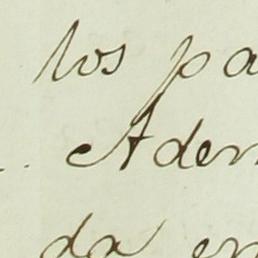 los pa
Adem
da en